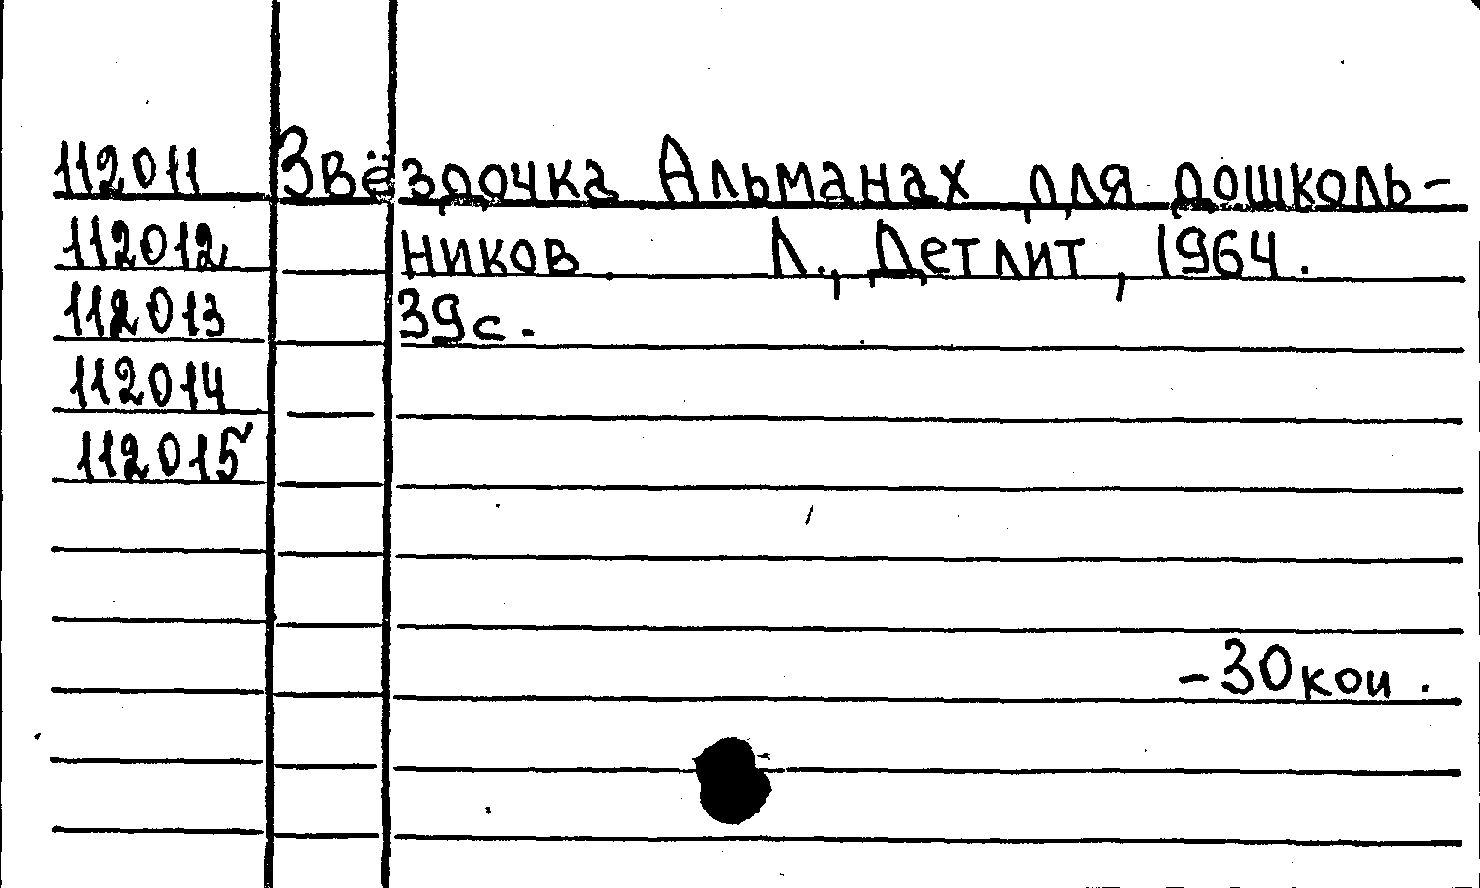 112011 Звёздочка Альманах для дошколь-
112012 ников Л., Детлит, 1964.
112013 39с.
112014
112015
-30коп.